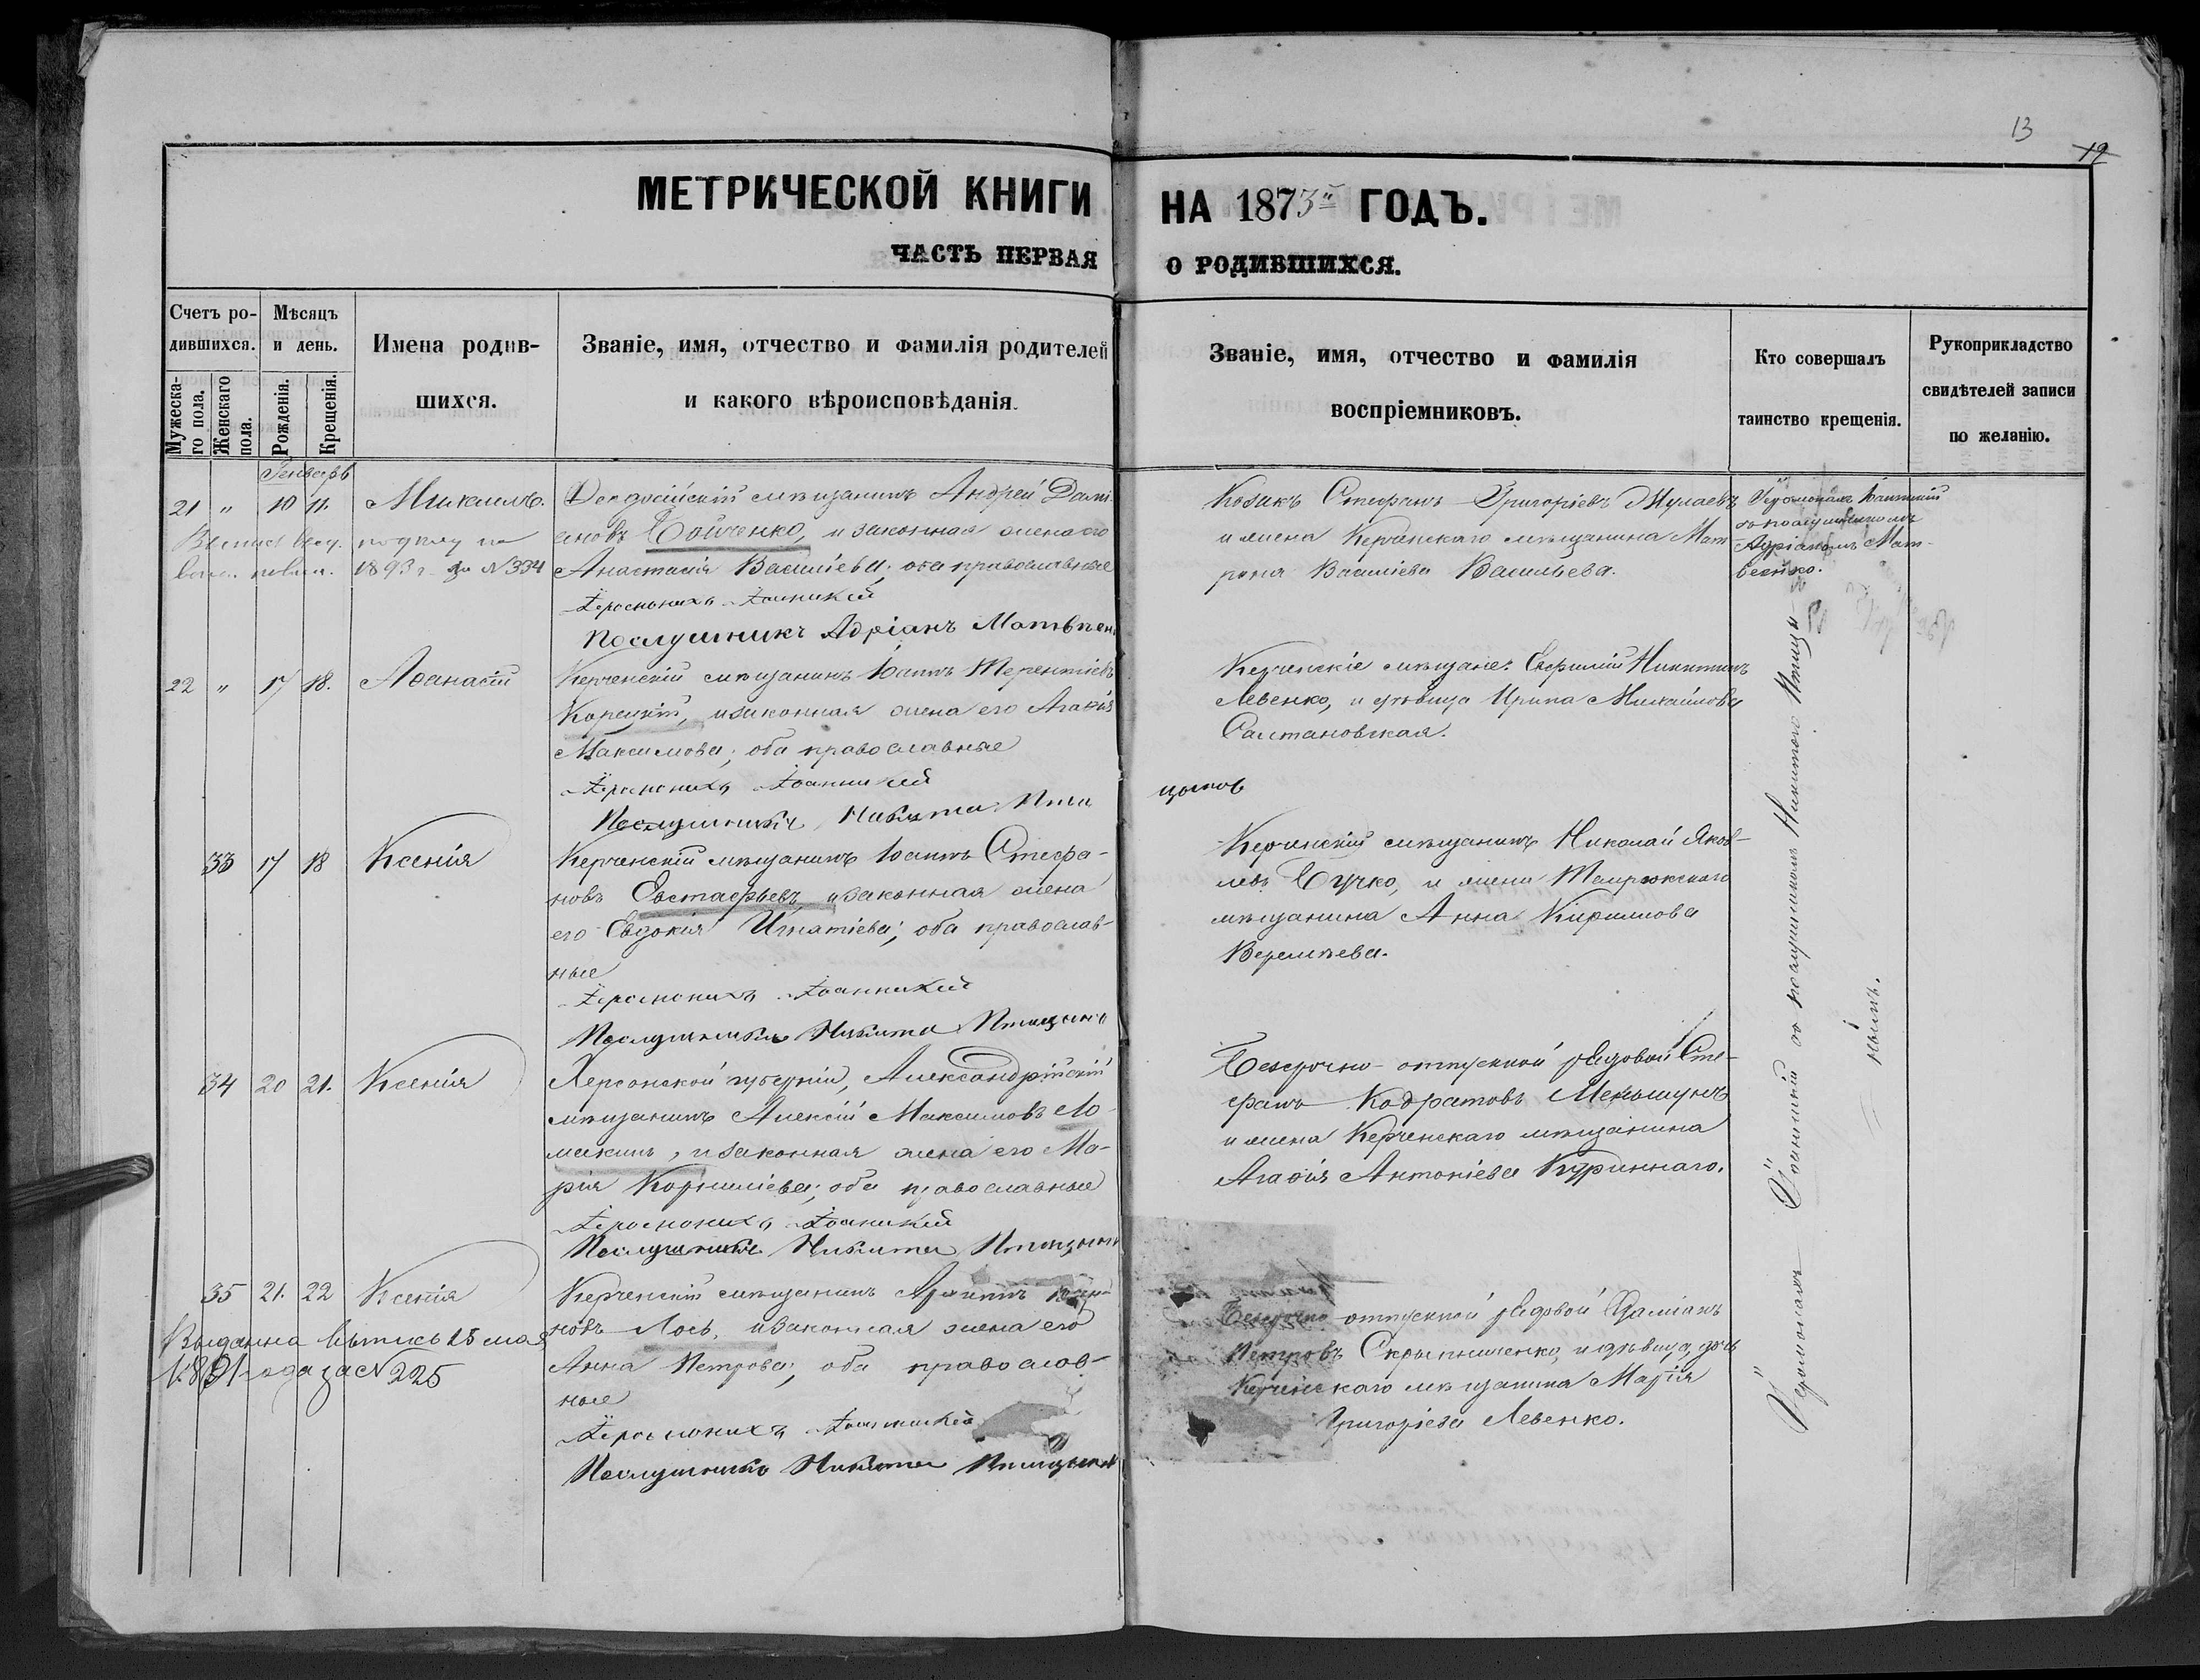 13
19
МЕТРИЧЕСКОЙ КНИГИ НА 1873й ГОДЪ.
ЧАСТЬ ПЕРВАЯ О РОДИВШИХСЯ.
Счетъ ро-
дившихся.
Мужеска-
го пола.
Женскаго
пола.
Мѣсяцъ
и день.
Рожденія.
Крещенія.
Имена родив-
шихся.
Званіе, имя, отчество и фамилія родителей
и какого вѣроисповѣданія.
Званіе, имя, отчество и фамилія
воспріемниковъ.
Кто совершалъ
таинство крещенія.
Рукоприкладство
свидѣтелей записи
по желанію.
Генварь
21 " 10 11. Михаилъ.
1893 г. за N 334
Ѳеодосійскій мѣщанинъ Андрей Дамі-
ановъ Бойченко, и законная жена его
Анастасія Василіева; оба православные
Іеромонахъ Іоанникій
Послушникъ Адріанъ Матвѣен
Козакъ Стефанъ Григоріевъ
и жена Керченскаго мѣщанина Мат-
рона Василіева Васильева.
Іеромонахъ Іоанникій
съ послушникомъ
Адріаномъ Мат-
веенко.
22 " 17 18. Аѳанасій
Керченскій мѣщанинъ Іоаннъ Терентіевъ
Корецкій, и законная жена его Агаѳія
Максимова; оба православные
Іеромонахъ Іоанникій
Послушникъ Никита Пти
цынов
Керченскіе мѣщане: Евфимій Никитинъ
Левенко, и дѣвица Ирина Михайлова
Салтановская.
33 17 18 Ксенія
Керченскій мѣщанинъ Іоаннъ Стефа-
новъ Евстафьевъ, и законная жена
его Евдокія Игнатіева; оба православ-
ные
Іеромонахъ Іоанникій
Послушникъ Никита Птицынъ
Керченскій мѣщанинъ Николай Яков-
левъ Бучко, и жена Темрюкскаго
мѣщанина Анна Кириллова
Веремѣева.
34 20 21. Ксенія
Херсонской губерніи, Александрійскій
мѣщанинъ Алексій Максимовъ Ло-
макинъ, и законная жена его Ма-
рія Корниліева; оба православные
Іеромонахъ Іоанникій
Послушникъ Никита Птицынъ
Безсрочно-отпускной рядовой Сте-
фанъ Кодратовъ
и жена Керченскаго мѣщанина
Агаѳія Антоніева Куриннаго.
35 21. 22 Ксенія
Выданна выпись 15 мая
1891 года за N 225
Керченскій мѣщанинъ
новъ Лось, и законная жена его
Анна Петрова; оба православ-
ные
Іеромонахъ Іоанникій
Послушникъ Никита Птицынъ
Безсрочно отпускной рядовой Даміанъ
Петровъ Скрыпниченко, и дѣвица, дочь
Керченскаго мѣщанина Марія
Григоріева Левенко.
Іеромонахъ Іоанникій съ послушникомъ Никитою Птицы-
нымъ.